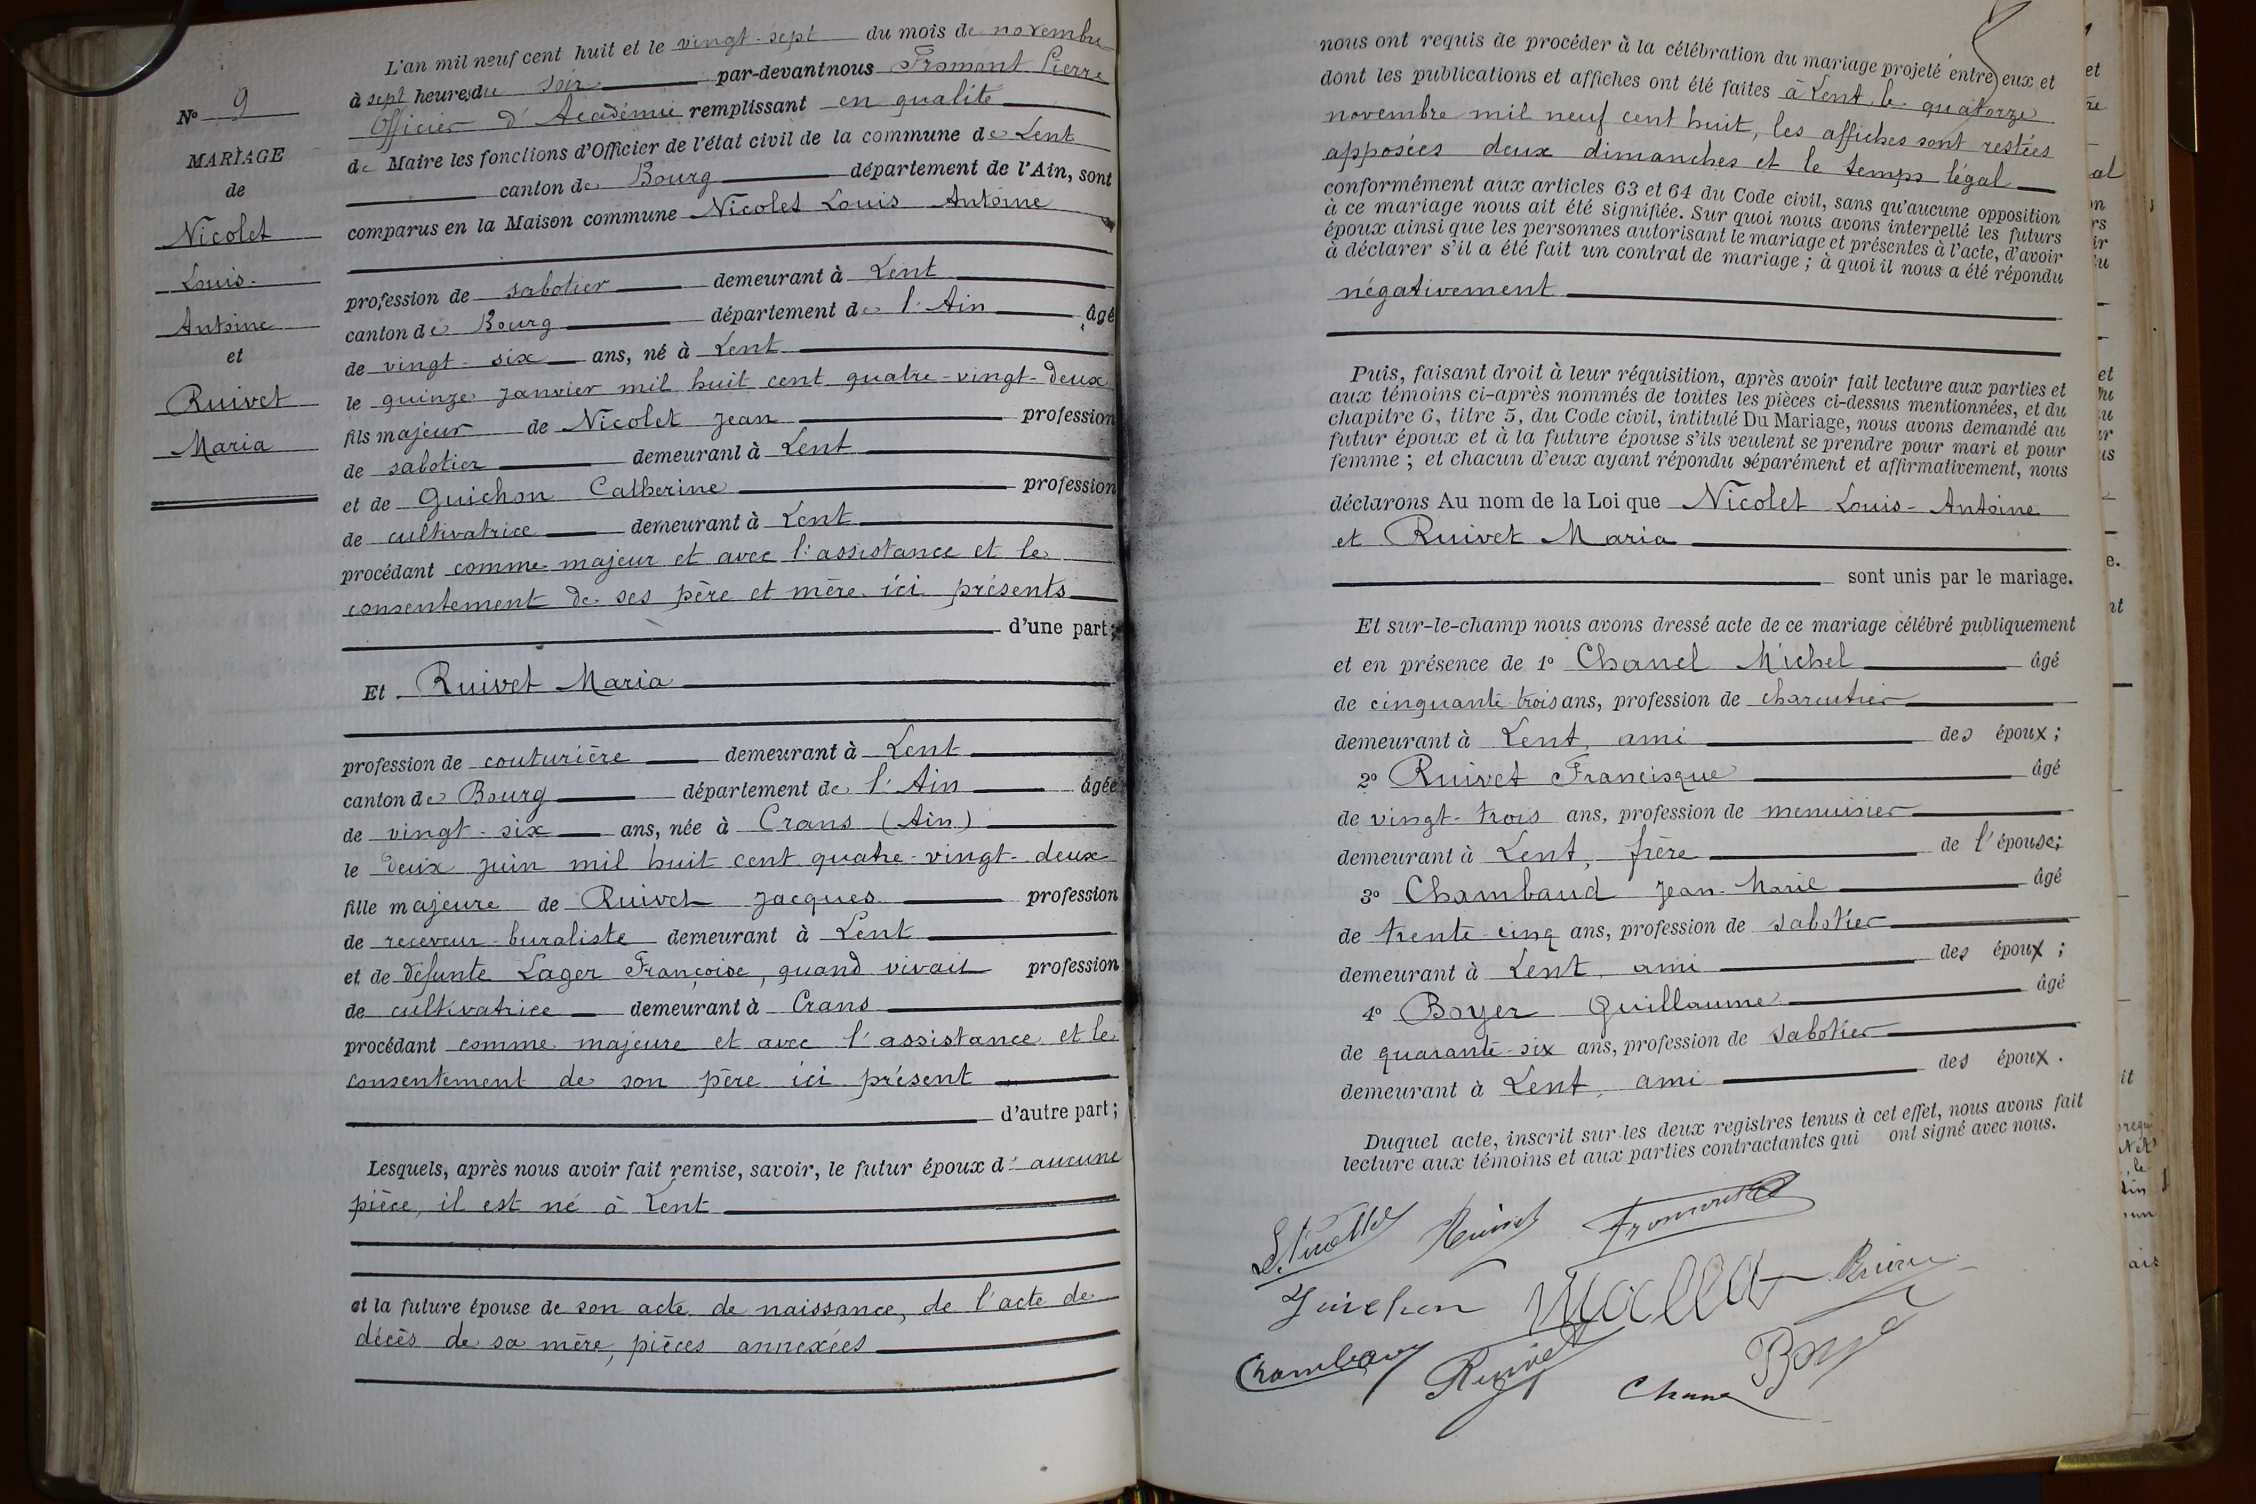 L'an mil neuf cent huit et le vingt-sept du mois de novembre
à sept heures du soir par-devant nous Fromont Pierre
Officier d'Académie remplissant en qualité
de Maire les fonctions d'Officier de l'état civil de la commune de Lent
canton de Bourg département de l'Ain, sont
comparus en la Maison commune Nicolet Louis Antoine
profession de sabotier demeurant à Lent
canton de Bourg département de l'Ain âgé
de vingt-six ans, né à Lent
le quinze janvier mil huit cent quatre-vingt-deux
fils majeur de Nicolet Jean profession
de sabotier demeurant à Lent
et de Guichon Catherine profession
de cultivatrice demeurant à Lent
procédant comme majeur et avec l'assistance et le
consentement de ses père et mère ici présents
d'une part;
Et Ruivet Maria
profession de couturière demeurant à Lent
canton de Bourg département de l'Ain âgée
de vingt-six ans, née à Crans (Ain)
le deux juin mil huit cent quatre-vingt-deux
fille majeure de Ruivet Jacques profession
de receveur-buraliste demeurant à Lent
et de défunte Lager Françoise, quand vivait profession
de cultivatrice demeurant à Crans
procédant comme majeure et avec l'assistance et le
consentement de son père ici présent
d'autre part;
Lesquels, après nous avoir fait remise, savoir, le futur époux d'aucune
pièce, il est né à Lent
et la future épouse de son acte de naissance, de l'acte de
décès de sa mère, pièces annexées
No 9
MARIAGE
de
Nicolet
Louis-
Antoine
et
Ruivet
Maria
nous ont requis de procéder à la célébration du mariage projeté entre eux et
dont les publications et affiches ont été faites à Lent le quatorze
novembre mil neuf cent huit, les affiches sont restées
apposées deux dimanches et le temps légal
conformément aux articles 63 et 64 du Code civil, sans qu'aucune opposition
à ce mariage nous ait été signifiée. Sur quoi nous avons interpellé les futurs
époux ainsi que les personnes autorisant le mariage et présentes à l'acte, d'avoir
à déclarer s'il a été fait un contrat de mariage; à quoi il nous a été répondu
négativement
Puis, faisant droit à leur réquisition, après avoir fait lecture aux parties et
aux témoins ci-après nommés de toutes les pièces ci-dessus mentionnées, et du
chapitre 6, titre 5, du Code civil, intitulé Du Mariage, nous avons demandé au
futur époux et à la future épouse s'ils veulent se prendre pour mari et pour
femme; et chacun d'eux ayant répondu séparément et affirmativement, nous
déclarons Au nom de la Loi que Nicolet Louis-Antoine
et Ruivet Maria
sont unis par le mariage.
Et sur-le-champ nous avons dressé acte de ce mariage célébré publiquement
et en présence de 1o Chanel Michel âgé
de cinquante-trois ans, profession de charcutier
demeurant à Lent, ami des époux;
2o Ruivet Francisque âgé
de vingt-trois ans, profession de menuisier
demeurant à Lent, frère de l'épouse;
3o Chambaud Jean-Marie âgé
de trente-cinq ans, profession de sabotier
demeurant à Lent, ami des époux;
4o Boyer Guillaume âgé
de quarante-six ans, profession de sabotier
demeurant à Lent, ami des époux.
Duquel acte, inscrit sur les deux registres tenus à cet effet, nous avons fait
lecture aux témoins et aux parties contractantes qui ont signé avec nous.
Ruivet Fromont
Guichon
Chambaud Ruivet